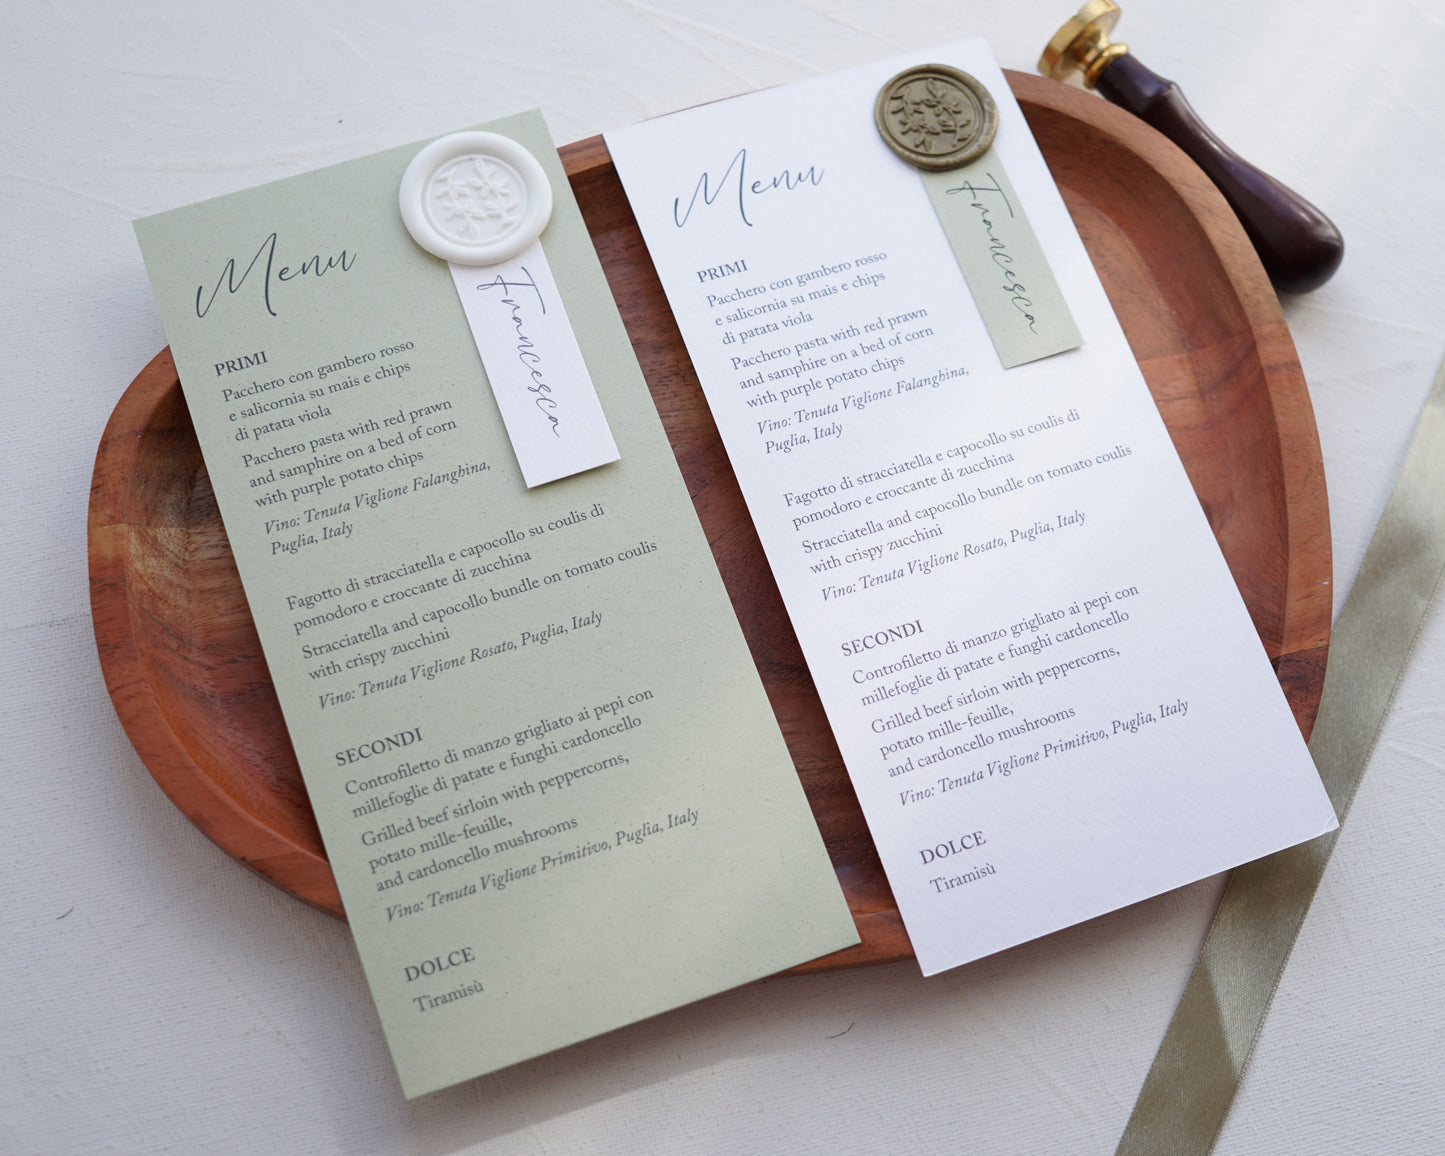 Menu
Francesca
PRIMI
Pacchero con gambero rosso
e salicornia su mais e chips
di patata viola
Pacchero pasta with red prawn
and samphire on a bed of corn
with purple potato chips
Vino: Tenuta Viglione Falanghina,
Puglia, Italy
Fagotto di stracciatella e capocollo su coulis di
pomodoro e croccante di zucchina
Stracciatella and capocollo bundle on tomato coulis
with crispy zucchini
Vino: Tenuta Viglione Rosato, Puglia, Italy
SECONDI
Controfiletto di manzo grigliato ai pepi con
millefoglie di patate e funghi cardoncello
Grilled beef sirloin with peppercorns,
potato mille-feuille,
and cardoncello mushrooms
Vino: Tenuta Viglione Primitivo, Puglia, Italy
DOLCE
Tiramisù
Menu
Francesca
PRIMI
Pacchero con gambero rosso
e salicornia su mais e chips
di patata viola
Pacchero pasta with red prawn
and samphire on a bed of corn
with purple potato chips
Vino: Tenuta Viglione Falanghina,
Puglia, Italy
Fagotto di stracciatella e capocollo su coulis di
pomodoro e croccante di zucchina
Stracciatella and capocollo bundle on tomato coulis
with crispy zucchini
Vino: Tenuta Viglione Rosato, Puglia, Italy
SECONDI
Controfiletto di manzo grigliato ai pepi con
millefoglie di patate e funghi cardoncello
Grilled beef sirloin with peppercorns,
potato mille-feuille,
and cardoncello mushrooms
Vino: Tenuta Viglione Primitivo, Puglia, Italy
DOLCE
Tiramisù